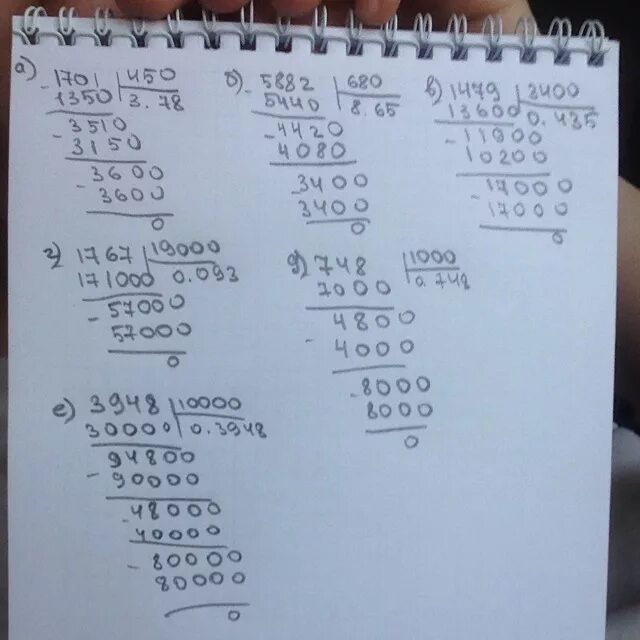 а) 1701 | 450
- 1350 | 3.78
- 3510
3150
- 3600
3600
0
б) 5882 | 680
- 5440 | 8.65
- 4420
4080
3400
3400
0
в) 1479 | 3400
13600 0.435
- 11900
10200
- 17000
17000
0
г) 1767 | 19000
171000 0.093
- 57000
57000
0
д) 748 | 1000
7000 0.748
4800
- 4000
- 8000
8000
0
е) 3948 | 10000
30000 0.3948
94800
- 90000
- 48000
40000
- 80000
80000
0